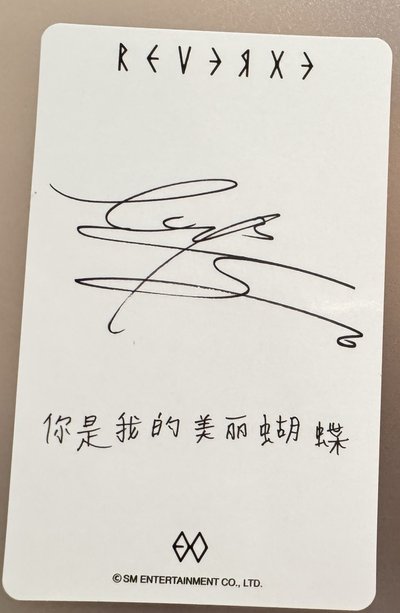 REVERXE
你是我的美丽蝴蝶
EXO
© SM ENTERTAINMENT CO., LTD.